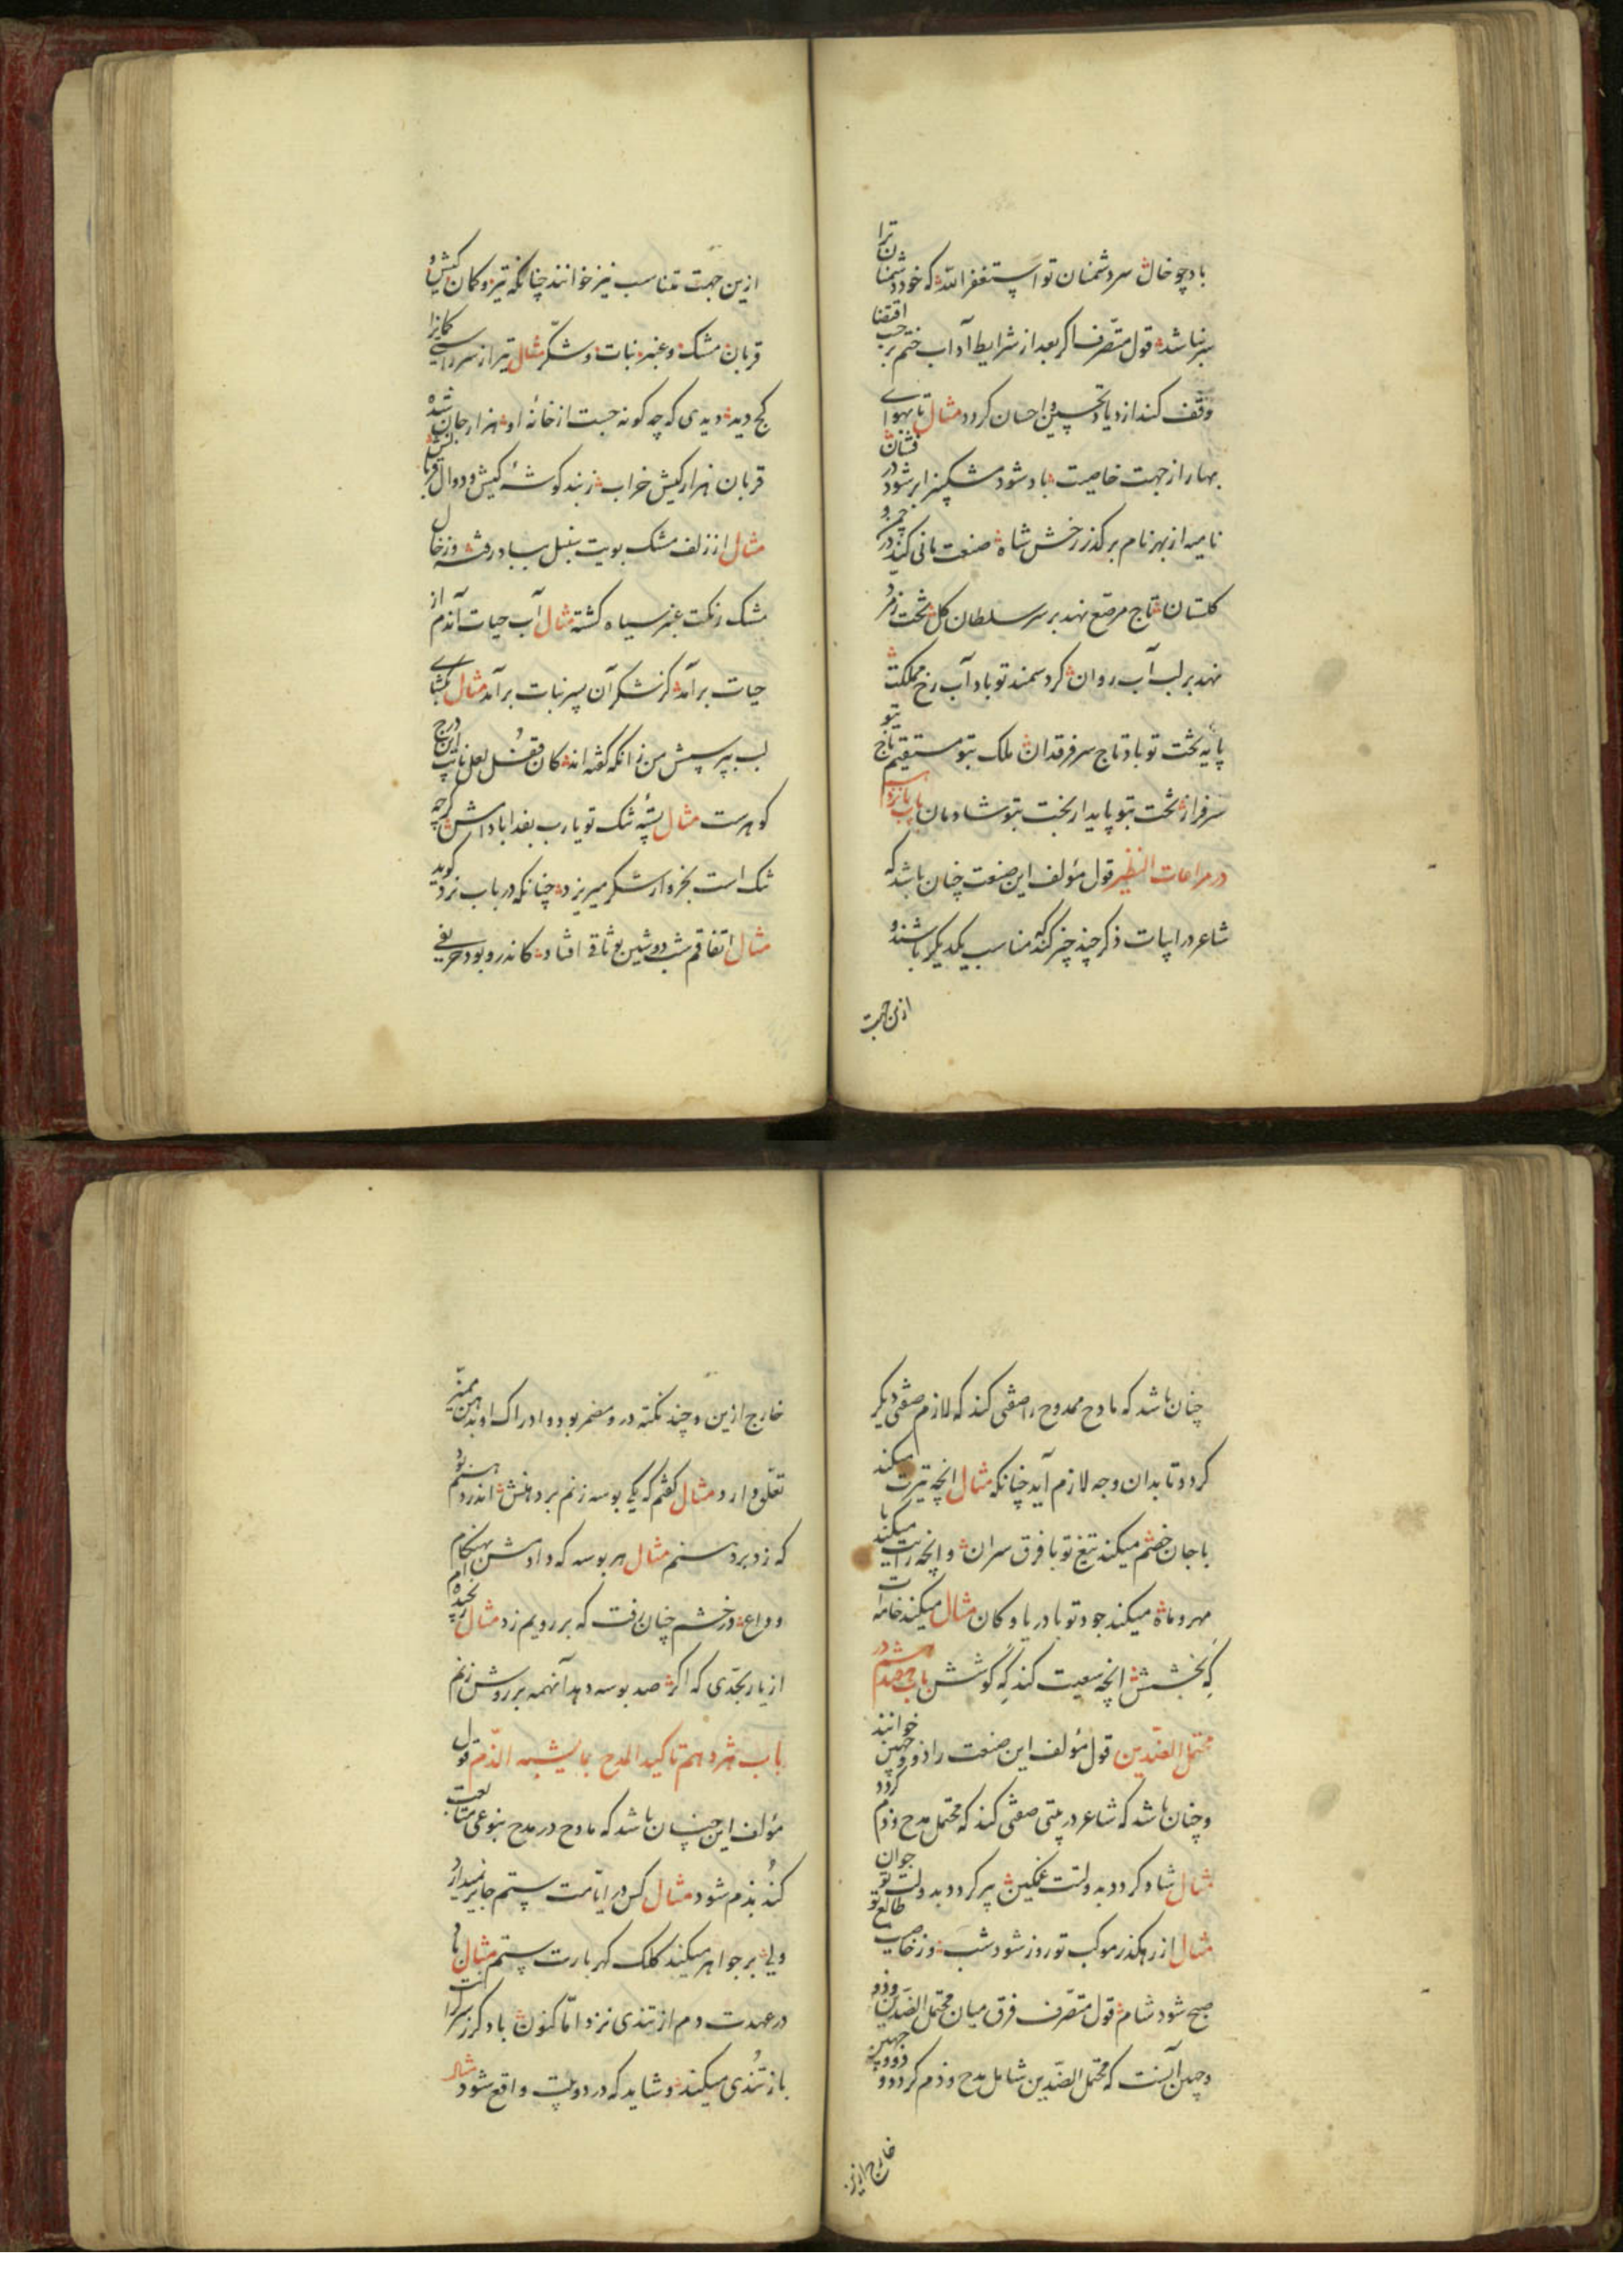 باد چو خال سر دشمنان تو استغفر الله که خود دشمنان ترا
سر نباشد قول متصرف اگر بعد از شرایط آداب ختم بر حسب اقتضا
وقف کند ازدیاد تحسین و احسان گردد مثال تا بهوای
بهار از جهت خاصیت باد شود مشکبیز ابر شود در فشان
نامیه از بهر نام بر گذر رخش شاه صنعت مانی کند در چمن و
گلستان تاج مرصع نهد بر سر سلطان گل تخت زمرد
نهد بر لب آب روان گرد سمند تو باد آب رخ مملکت
پایه تخت تو باد تاج سر فرقدان ملک بتو مستقیم تاج بتو
سرفراز تخت بتو پایدار بخت بتو شادمان باب پانزدهم
در مراعات النظیر قول مؤلف این صنعت چنان باشد که
شاعر در ابیات ذکر چند چیز کند که مناسب یکدیگر باشند و
ازین جهت
ازین جهت تناسب نیز خوانند چنانکه تیر و کمان کیش و
قربان مشک و عنبر نبات و شکر مثال تیر از سر راستی کمانرا
کج دید دیدی که چه گونه جست از خانه او هزار جان شده
قربان هزار کیش خراب زبند گوشه کیش و دوال قربانش
مثال از زلف مشک بویت سنبل بباد رفته وز خال
مشک رنگت عنبر سیاه گشته مثال آب حیات آندم از
حیات برآمد کز شکر آن پسر نبات برآمد مثال بگشای
لب بپرسش من زانکه گفته اند کان قفل لعل نایب این درج
گوهرست مثال پسته تنگ تو یارب بغداباد ارش گرچه
تنگ است بخروار شکر میریزد چنانکه در باب نرد گوید
مثال اتفاقم شب دوشین بوثاقی افتاد کاندرو بود حریفی
چنان باشد که مادح ممدوح را صفتی کند که لازم صفتی دیگر
گردد تا بدان وجه لازم آید چنانکه مثال انچه تیرت میکند
با جان خصم میکند تیغ تو با فرق سران وانچه رایت میکند با
مهر و ماه میکند جود تو با دریا و کان مثال میکند خامه ات
که بخشش انچه سعیت کند که کوشش باب هفدهم در
محتمل الضدین قول مؤلف این صنعت را ذو وجهین خوانند
و چنان باشد که شاعر در بیتی صفتی کند که محتمل مدح و ذم گردد
مثال شاد گردد به دولتت غمگین پیر گردد به دولت تو جوان
مثال از رهگذر موکب تو روز شود شب وز خاصیت طالع تو
صبح شود شام قول متصرف فرق میان محتمل الضدین و ذو
وجهین آنست که محتمل الضدین شامل مدح و ذم گردد و ذو وجهین
خارج ازین
خارج ازین و چند نکته درو مضمر بود و ادراک او بذهن ممیز
تعلق دارد مثال گفتم که یکی بوسه زنم بر دهنش اندر دستم بود
که زد بر دستم مثال هر بوسه که دادمش بهنگام
وداع در خشم چنان برفت که بر رویم زد مثال رنجیده ام
از یار بحدی که اگر صد بوسه دهد آنهمه بر روش زنم
باب هژدهم تاکید المدح بما یشبه الذم قول
مؤلف این چنان باشد که مادح در مدح بنوعی متابعت
کند بذم شود مثال کس در ایامت ستم جایز نمیدارد
ولی بر جواهر میکند کلک گهر بارت ستم مثال با
در عهدت دم از تندی نزد اما کنون باد گرز
باز تندی میکند و شاید که در دو بیت واقع شود مثال